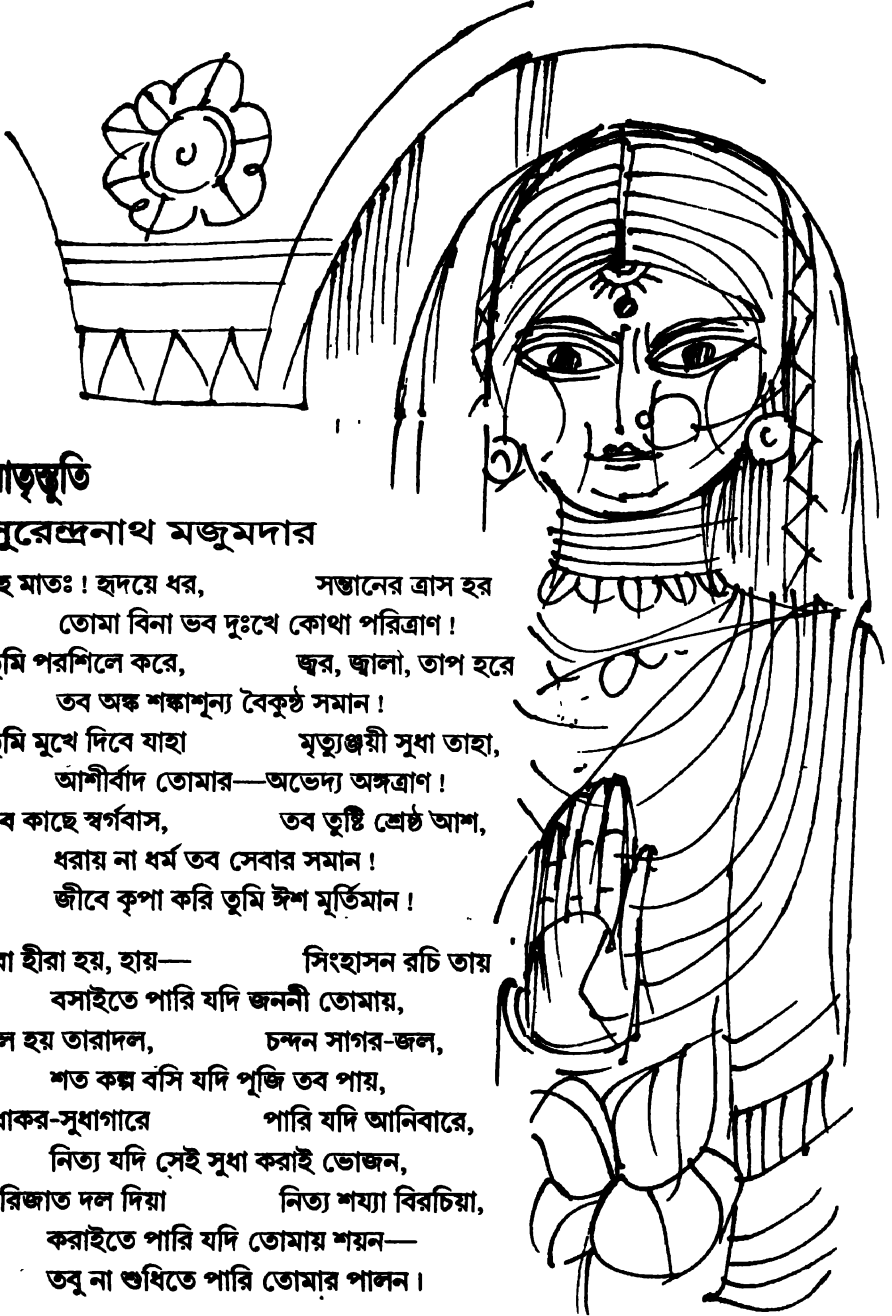 াতৃস্তুতি
সুরেন্দ্রনাথ মজুমদার
হ মাতঃ ! হৃদয়ে ধর, সন্তানের ত্রাস হর
তোমা বিনা ভব দুঃখে কোথা পরিত্রাণ !
ুমি পরশিলে করে, জ্বর, জ্বালা, তাপ হরে
তব অঙ্ক শঙ্কাশূন্য বৈকুণ্ঠ সমান !
ুমি মুখে দিবে যাহা মৃত্যুঞ্জয়ী সুধা তাহা,
আশীর্বাদ তোমার—অভেদ্য অঙ্গত্রাণ !
ব কাছে স্বর্গবাস, তব তুষ্টি শ্রেষ্ঠ আশ,
ধরায় না ধর্ম তব সেবার সমান !
জীবে কৃপা করি তুমি ঈশ মূর্তিমান !
রা হীরা হয়, হায়— সিংহাসন রচি তায়
বসাইতে পারি যদি জননী তোমায়,
ল হয় তারাদল, চন্দন সাগর-জল,
শত কল্প বসি যদি পূজি তব পায়,
ধাকর-সুধাগারে পারি যদি আনিবারে,
নিত্য যদি সেই সুধা করাই ভোজন,
রিজাত দল দিয়া নিত্য শয্যা বিরচিয়া,
করাইতে পারি যদি তোমায় শয়ন—
তবু না শুধিতে পারি তোমার পালন।